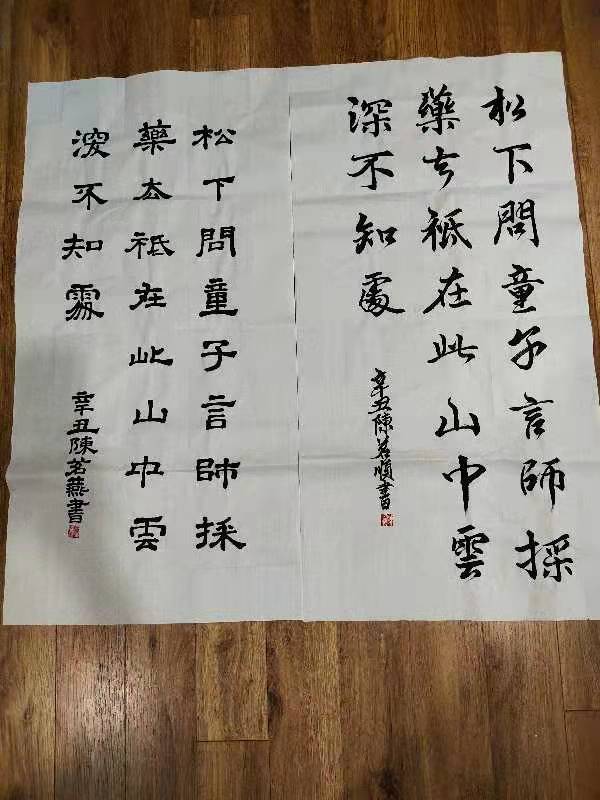 松下問童子言師採
藥去祗在此山中雲
深不知處
辛丑陳茗順書
松下問童子言師採
藥去祗在此山中雲
深不知處
辛丑陳茗燕書